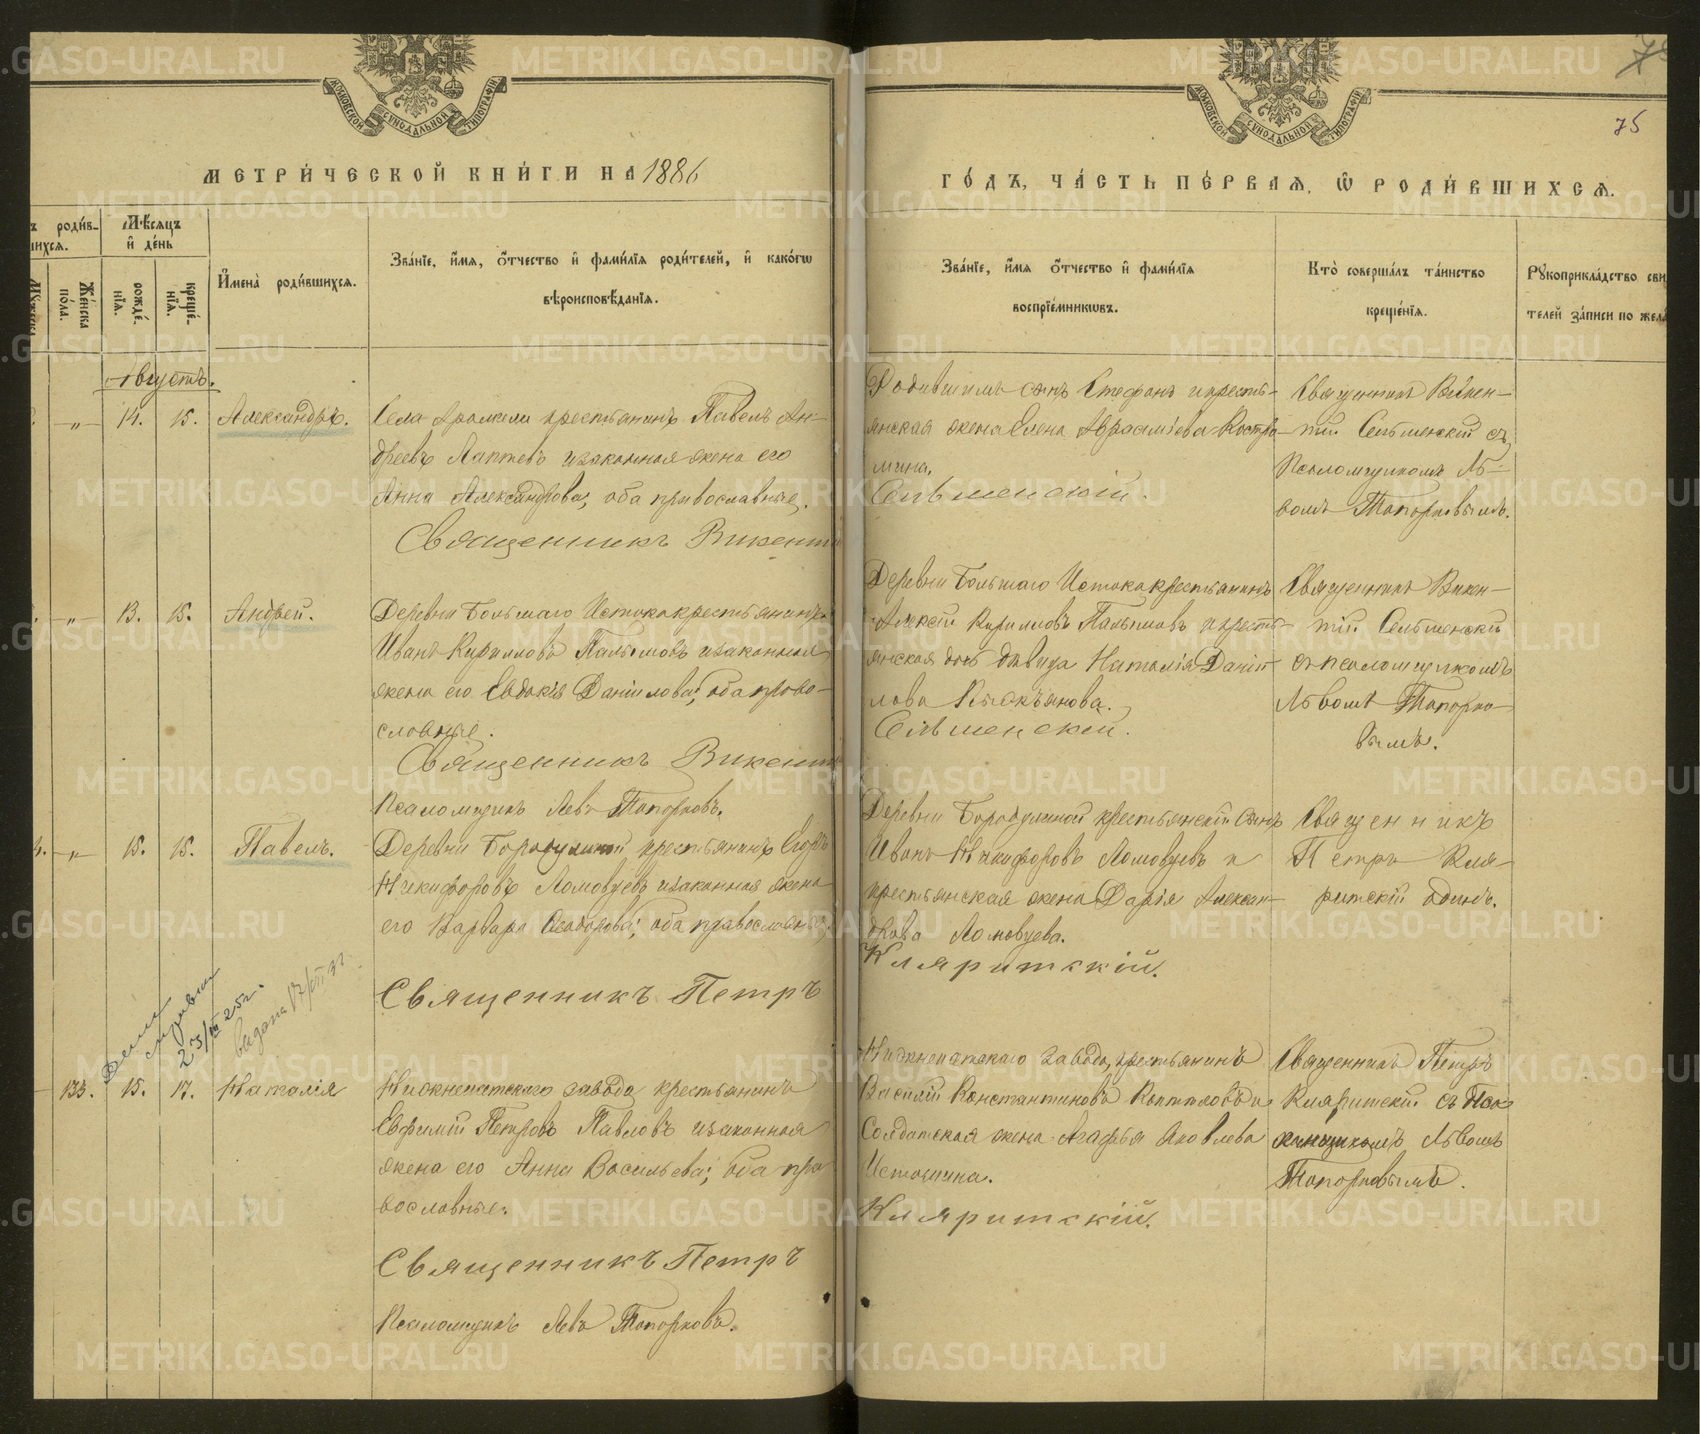 МЕТРИЧЕСКОЙ КНИГИ НА 1886
родив-
шихся.
Мѣсяцъ
и день
Имена родившихся.
Званіе, имя, отчество и фамилія родителей, и какого
вѣроисповѣданія.
Мужеска
Женска
пола.
рожде-
нія.
креще-
нія.
Августъ.
„ 14. 15. Александръ.
Села Арамили крестьянинъ Павелъ Ан-
дреевъ Лаптевъ и законная жена его
Анна Александрова, оба православные.
Священникъ Викентій
„ 13. 15. Андрей.
Деревни Большаго Истока крестьянинъ
Иванъ Кирилловъ Палтышовъ и законная
жена его Евдокія Даніилова, оба право-
славные.
Священникъ Викентій
Псаломщикъ Левъ Топорковъ.
„ 15. 15. Павелъ.
Деревни Бородулиной крестьянинъ Егоръ
Никифоровъ Ломовцевъ и законная жена
его Варвара Ѳеодорова, оба православные
Священникъ Петръ
справка
23/III 25г.
выдана
133. 15. 17. Наталія
Нижнеисетскаго завода крестьянинъ
Евфимій Петровъ Павловъ и законная
жена его Анна Васильева, оба пра
вославные.
Священникъ Петръ
Псаломщикъ Левъ Топорковъ.
75
ГОДЪ, ЧАСТЬ ПЕРВАЯ, Ѡ РОДИВШИХСЯ.
Званіе, имя отчество и фамилія
воспріемниковъ.
Кто совершалъ таинство
крещенія.
Рукоприкладство сви
телей записи по жела
сынъ Стефанъ и кресть-
янская жена Елена Авраамиева Костро-
мина.
Сельменскій.
Священникъ Викен-
тій Сельменскій съ
Псаломщикомъ Ль-
вомъ Топорковымъ.
Деревни Большаго Истока крестьянинъ
Алексѣй Кирилловъ Палтышовъ и кресть-
янская дочь девица Наталія Даніи-
лова
Сельменскій.
Священникъ Викен-
тій Сельменскій
съ псаломщикомъ
Львомъ Топорко-
вымъ.
Деревни Бородулиной крестьянскій сынъ
Иванъ Никифоровъ Ломовцевъ и
крестьянская жена Дарія Алексан-
дрова Ломовцева.
Кляритскій.
Священникъ
Петръ Кля-
ритскій одинъ.
Нижнеисетскаго завода крестьянинъ
Василій Константиновъ и
Солдатская жена Агафья Яковлева
Истомина.
Кляритскій.
Священникъ Петръ
Кляритскій съ Пса
ломщикомъ Львомъ
Топорковымъ.
METRIKI.GASO-URAL.RU